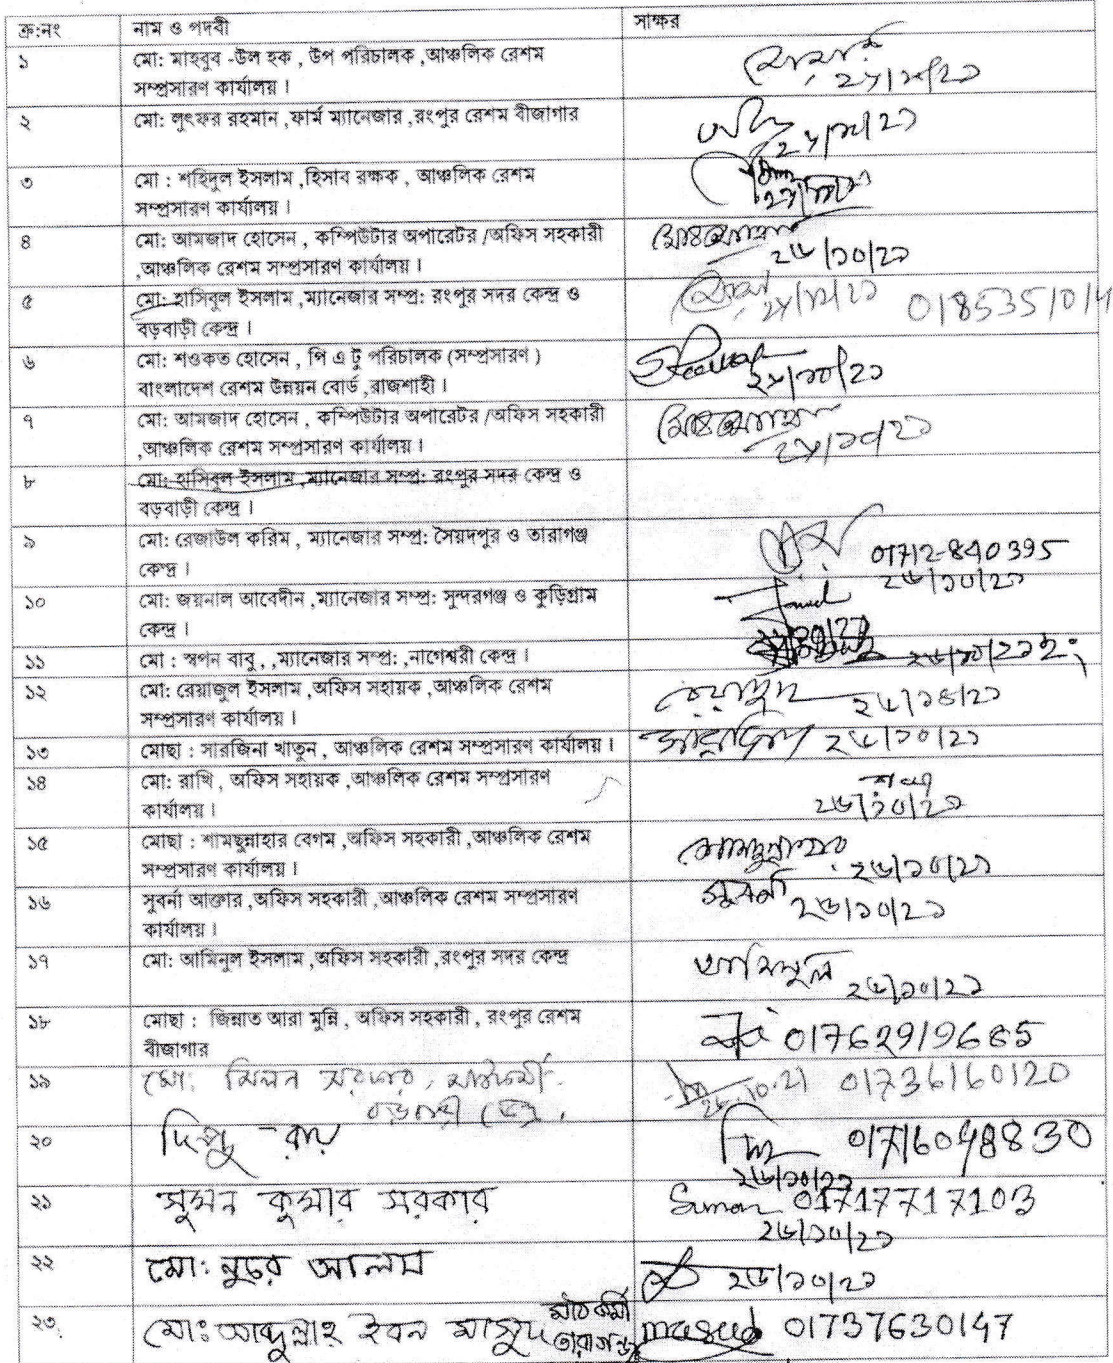 ক্র:নং নাম ও পদবী সাক্ষর
১ মো: মাহবুব -উল হক , উপ পরিচালক ,আঞ্চলিক রেশম
সম্প্রসারণ কার্যালয় ।
২ মো: লুৎফর রহমান ,ফার্ম ম্যানেজার ,রংপুর রেশম বীজাগার
৩ মো : শহিদুল ইসলাম ,হিসাব রক্ষক , আঞ্চলিক রেশম
সম্প্রসারণ কার্যালয় ।
৪ মো: আমজাদ হোসেন , কম্পিউটার অপারেটর /অফিস সহকারী
,আঞ্চলিক রেশম সম্প্রসারণ কার্যালয় । ২৬/১০/২১
৫ মো: হাসিবুল ইসলাম ,ম্যানেজার সম্প্র: রংপুর সদর কেন্দ্র ও
বড়বাড়ী কেন্দ্র ।
৬ মো: শওকত হোসেন , পি এ টু পরিচালক (সম্প্রসারণ )
বাংলাদেশ রেশম উন্নয়ন বোর্ড ,রাজশাহী । ২৬/১০/২১
৭ মো: আমজাদ হোসেন , কম্পিউটার অপারেটর /অফিস সহকারী
,আঞ্চলিক রেশম সম্প্রসারণ কার্যালয় । ২৬/১০/২১
৮ মো: হাসিবুল ইসলাম ,ম্যানেজার সম্প্র: রংপুর সদর কেন্দ্র ও
বড়বাড়ী কেন্দ্র ।
৯ মো: রেজাউল করিম , ম্যানেজার সম্প্র: সৈয়দপুর ও তারাগঞ্জ 01712-840395
কেন্দ্র । ২৬/১০/২১
১০ মো: জয়নাল আবেদীন ,ম্যানেজার সম্প্র: সুন্দরগঞ্জ ও কুড়িগ্রাম
কেন্দ্র ।
১১ মো : স্বপন বাবু , ,ম্যানেজার সম্প্র: ,নাগেশ্বরী কেন্দ্র ।
১২ মো: রেয়াজুল ইসলাম ,অফিস সহায়ক ,আঞ্চলিক রেশম
সম্প্রসারণ কার্যালয় ।
১৩ মোছা : সারজিনা খাতুন , আঞ্চলিক রেশম সম্প্রসারণ কার্যালয় । ২৬/১০/২১
১৪ মো: রাখি , অফিস সহায়ক ,আঞ্চলিক রেশম সম্প্রসারণ
কার্যালয় । ২৬/১০/২১
১৫ মোছা : শামছুন্নাহার বেগম ,অফিস সহকারী ,আঞ্চলিক রেশম
সম্প্রসারণ কার্যালয় । ২৬/১০/২১
১৬ সুবর্না আক্তার ,অফিস সহকারী ,আঞ্চলিক রেশম সম্প্রসারণ সুবর্না
কার্যালয় । ২৬/১০/২১
১৭ মো: আমিনুল ইসলাম ,অফিস সহকারী ,রংপুর সদর কেন্দ্র আমিনুল
২৬/১০/২১
১৮ মোছা : জিন্নাত আরা মুন্নি , অফিস সহকারী , রংপুর রেশম 01762919685
বীজাগার
১৯ মো: মিলন সরদার, মাঠকর্মী 26.10.21 01736160120
বড়বাড়ী কেন্দ্র ।
২০ দিপু রায় 01716048830
২৬/১০/২১
২১ সুমন কুমার সরকার Suman 01717717103
২৬/১০/২১
২২ মো: নুরে আলম ২৬/১০/২১
২৩ মো: আব্দুল্লাহ ইবন মাসুদ মাঠকর্মী তারাগঞ্জ masud 01737630147